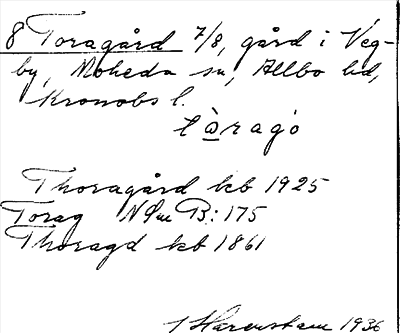 8 Toragård 7/8, gård i Veg-
by, Moheda sn, Allbo hd,
Kronobs l.
tò̲ragó
Thoragård kb 1925
Torag NQm B: 175
Thoragd kb 1861
Harenstam 1936